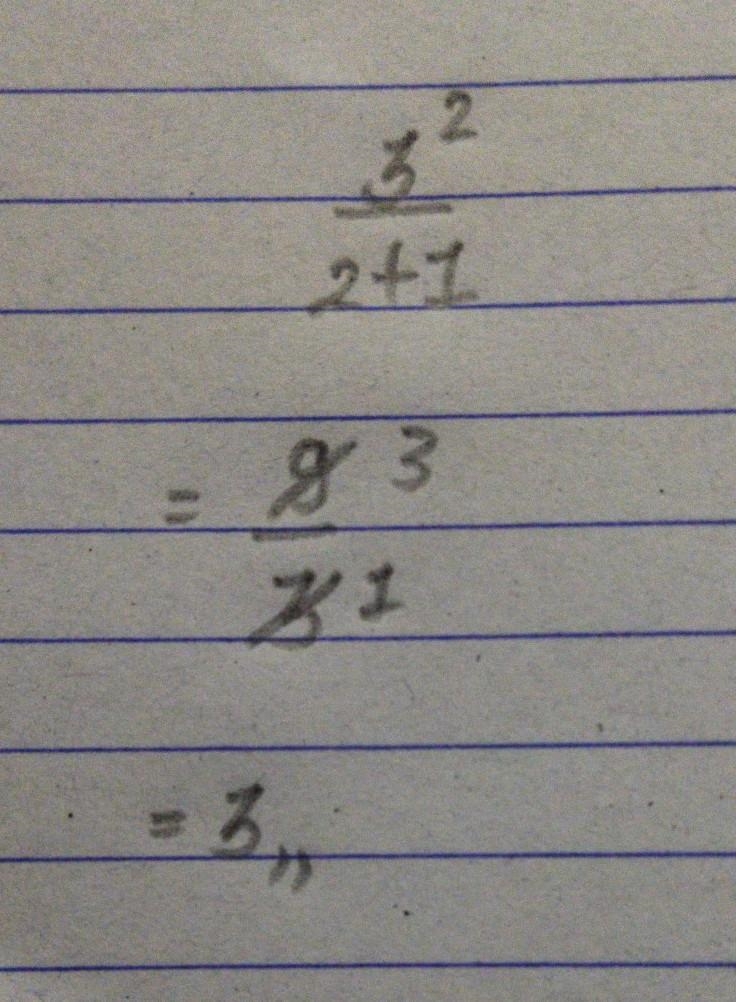 3²
2+1
= 9 3
3 1
= 3,,